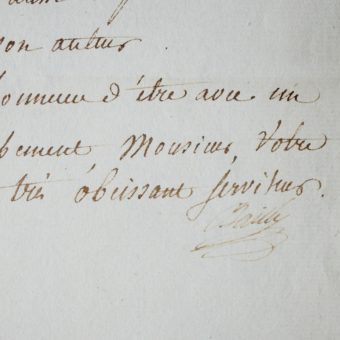 son auteur
honneur d'être avec un
chement Monsieur, Votre
très obeissant serviteur.
Bailly